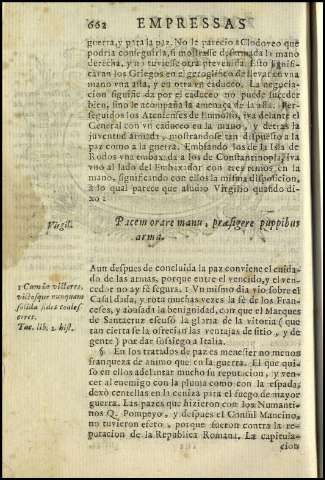 662 EMPRESSAS
guerra, y para la paz. No le parecio a Clodoveo que
podria conseguirla, si mostrasse desarmada la mano
derecha, y no tuviesse otra prevenida. Esto signifi-
caran los Griegos en el geroglifico de llevar en vna
mano vna asta, y en otra vn caduceo. La negocia-
cion significada por el caduceo no puede suceder
bien, sino le acompaña la amenaça de la asta. Per-
seguidos los Atenienses de Eumolfo, iva delante el
General con vn caduceo en la mano, y detras la
juventud armada, mostrandose tan dispuesto a la
paz como a la guerra. Embiando los de la Isla de
Rodos vna embaxada a los de Constantinopla, iva
vno al lado del Embaxador con tres remos en la
mano, significando con ellos la misma disposicion,
a lo qual parece que aludio Virgilio quando di-
xo:
Virgil.
Pacem orare manu, præfigere puppibus
arma.
Aun despues de concluida la paz conviene el cuida-
do de las armas, porque entre el vencido, y el ven-
cedor no ay fè segura. 1 Vn mismo dia vio sobre el
Casal dada, y rota muchas vezes la fè de los Fran-
ceses, y abusada la benignidad, con que el Marques
de Santacruz escusò la gloria de la vitoria (que
tan cierta se la ofrecian las ventajas de sitio, y de
gente) por dar sossiego a Italia.
1 Cum in victores,
victosque nunquam
solida fides coales-
ceret.
Tac. lib. 2. hist.
§ En los tratados de paz es menester no menos
franqueza de animo que en la guerra. El que qui-
so en ellos adelantar mucho su reputacion, y ven-
cer al enemigo con la pluma como con la espada,
dexò centellas en la ceniza para el fuego de mayor
guerra. Las pazes que hizieron con los Numanti-
nos Q. Pompeyo, y despues el Consul Mancino,
no tuvieron efeto, porque fueron contra la re-
putacion de la Republica Romana. La capitula-
cion